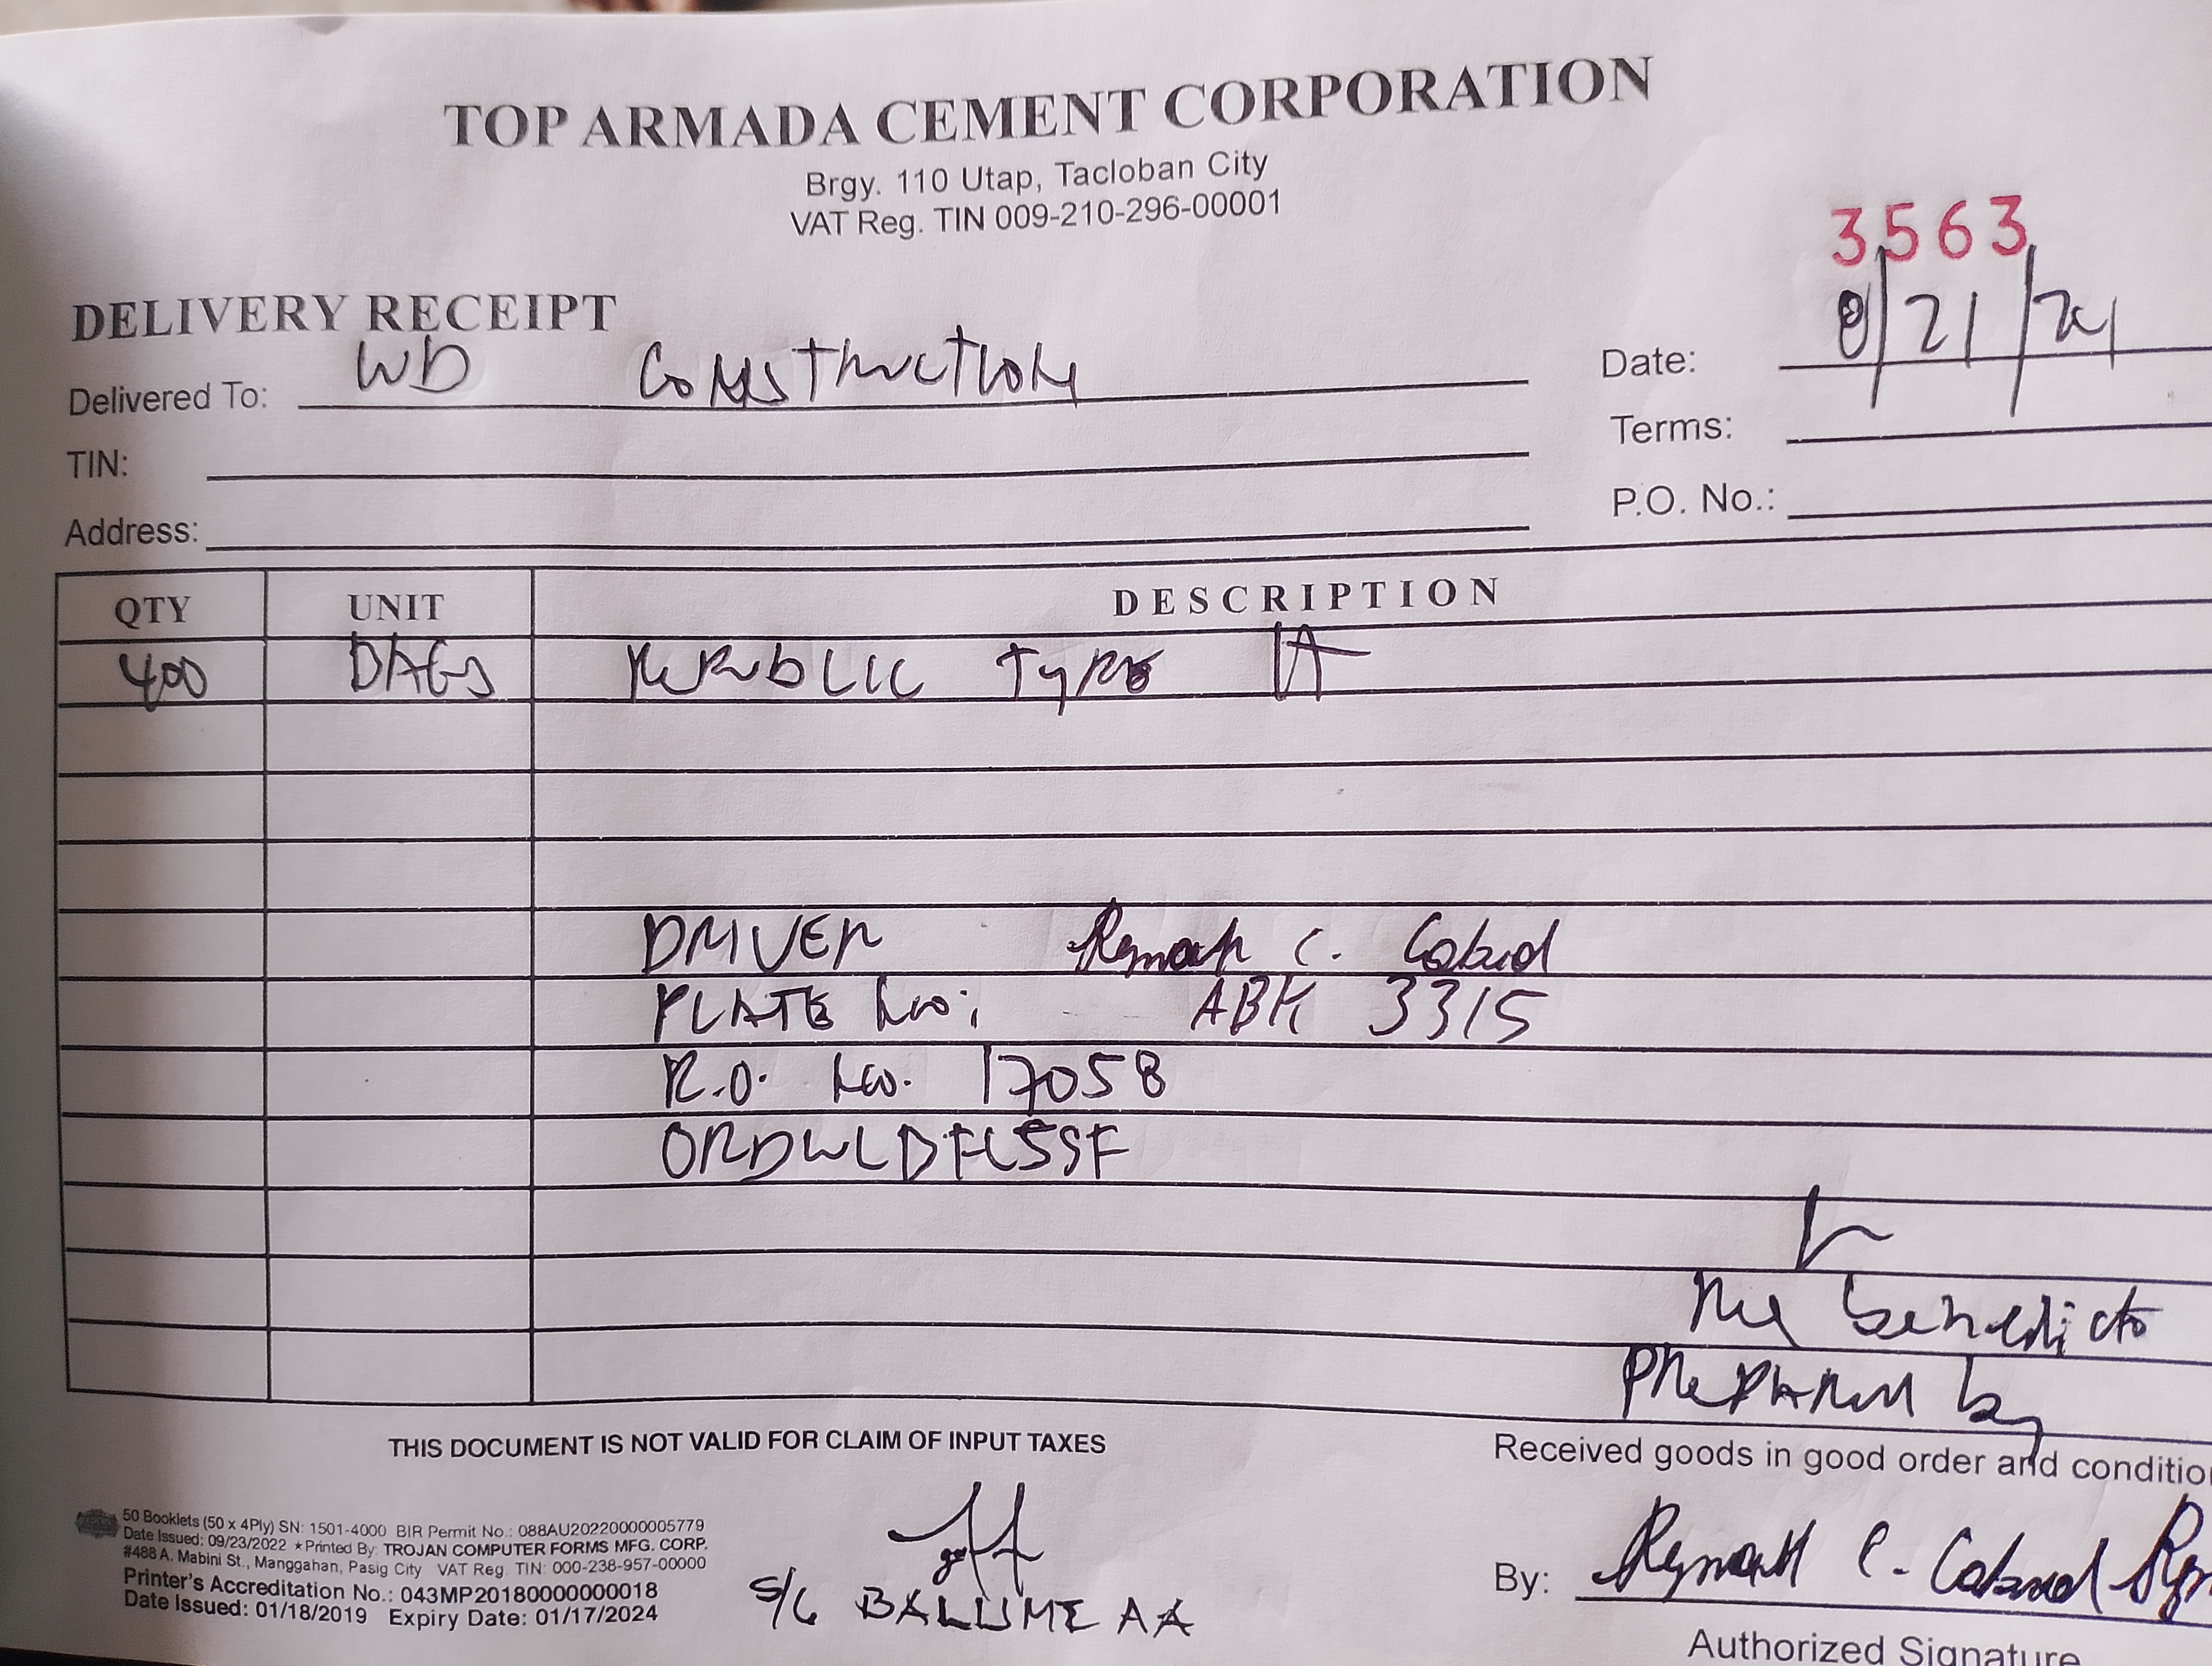 TOP ARMADA CEMENT CORPORATION
Brgy. 110 Utap, Tacloban City
VAT Reg. TIN 009-210-296-00001
3563
DELIVERY RECEIPT
Delivered To: WD Construction
Date: 8/21/24
TIN:
Terms:
Address:
P.O. No.:
QTY UNIT DESCRIPTION
400 BAGS REPUBLIC TYPE
DRIVER C.
PLATE No: ABK 3315
R.O. No. 17058
benedicto
Prepared by
THIS DOCUMENT IS NOT VALID FOR CLAIM OF INPUT TAXES
Received goods in good order and conditio
50 Booklets (50 x 4Ply) SN: 1501-4000 BIR Permit No.: 088AU20220000005779
Date Issued: 09/23/2022 ★ Printed By: TROJAN COMPUTER FORMS MFG. CORP.
#488 A. Mabini St., Manggahan, Pasig City VAT Reg. TIN: 000-238-957-00000
Printer's Accreditation No.: 043MP20180000000018
Date Issued: 01/18/2019 Expiry Date: 01/17/2024
By: C.
S/G AA
Authorized Signature